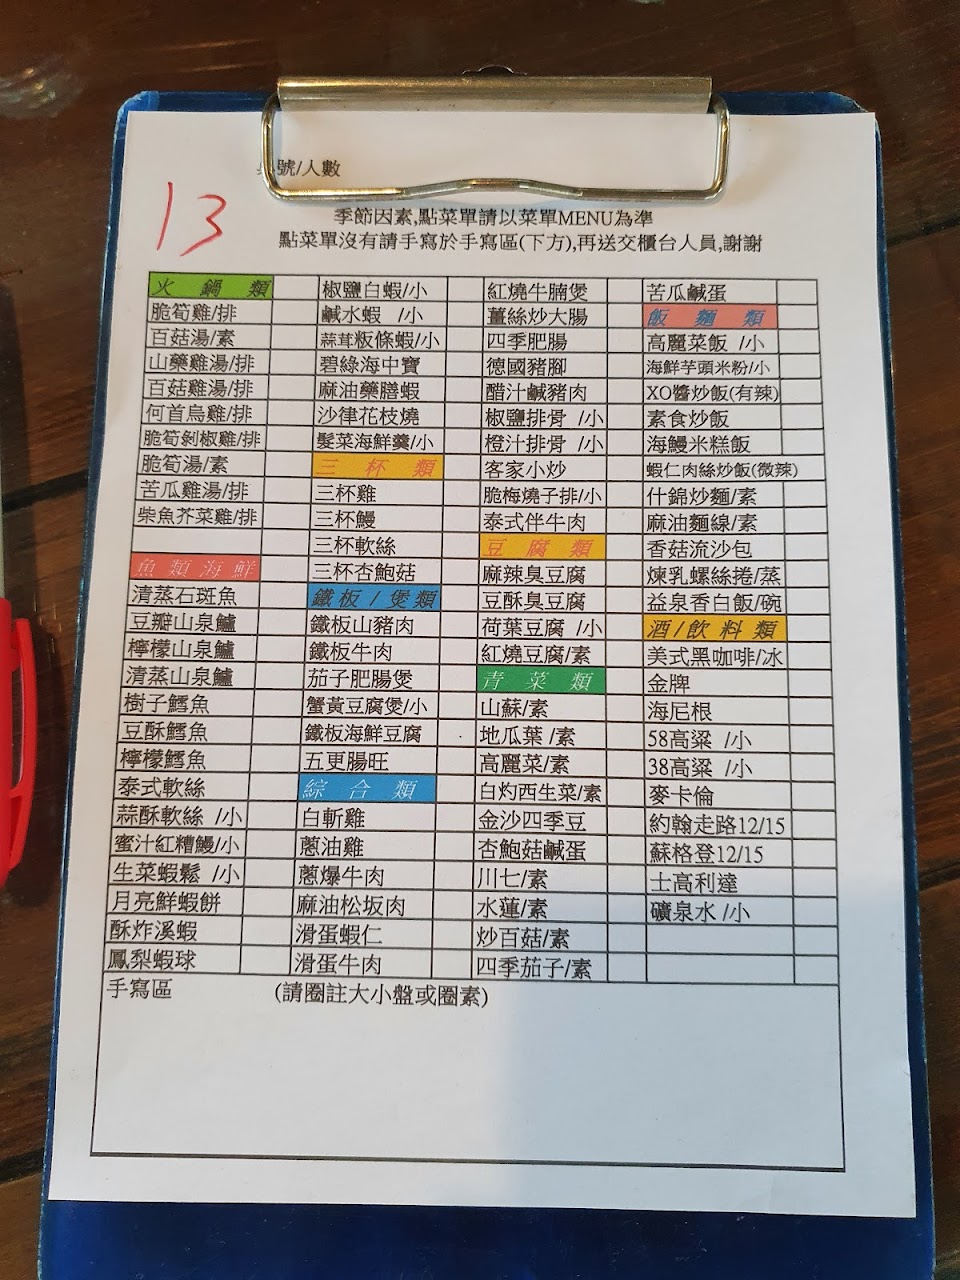 號/人數
13
季節因素,點菜單請以菜單MENU為準
點菜單沒有請手寫於手寫區(下方),再送交櫃台人員,謝謝
火鍋類
脆筍雞/排
百菇湯/素
山藥雞湯/排
百菇雞湯/排
何首烏雞/排
脆筍剝椒雞/排
脆筍湯/素
苦瓜雞湯/排
柴魚芥菜雞/排
魚類海鮮
清蒸石斑魚
豆瓣山泉鱸
檸檬山泉鱸
清蒸山泉鱸
樹子鱈魚
豆酥鱈魚
檸檬鱈魚
泰式軟絲
蒜酥軟絲 /小
蜜汁紅糟鰻/小
生菜蝦鬆 /小
月亮鮮蝦餅
酥炸溪蝦
鳳梨蝦球
椒鹽白蝦/小
鹹水蝦 /小
蒜茸粄條蝦/小
碧綠海中寶
麻油藥膳蝦
沙律花枝燒
髮菜海鮮羹/小
三杯類
三杯雞
三杯鰻
三杯軟絲
三杯杏鮑菇
鐵板/煲類
鐵板山豬肉
鐵板牛肉
茄子肥腸煲
蟹黃豆腐煲/小
鐵板海鮮豆腐
五更腸旺
綜合類
白斬雞
蔥油雞
蔥爆牛肉
麻油松坂肉
滑蛋蝦仁
滑蛋牛肉
紅燒牛腩煲
薑絲炒大腸
四季肥腸
德國豬腳
醋汁鹹豬肉
椒鹽排骨 /小
橙汁排骨 /小
客家小炒
脆梅燒子排/小
泰式伴牛肉
豆腐類
麻辣臭豆腐
豆酥臭豆腐
荷葉豆腐 /小
紅燒豆腐/素
青菜類
山蘇/素
地瓜葉 /素
高麗菜/素
白灼西生菜/素
金沙四季豆
杏鮑菇鹹蛋
川七/素
水蓮/素
炒百菇/素
四季茄子/素
苦瓜鹹蛋
飯麵類
高麗菜飯 /小
海鮮芋頭米粉/小
XO醬炒飯(有辣)
素食炒飯
海鰻米糕飯
蝦仁肉絲炒飯(微辣)
什錦炒麵/素
麻油麵線/素
香菇流沙包
煉乳螺絲捲/蒸
益泉香白飯/碗
酒/飲料類
美式黑咖啡/冰
金牌
海尼根
58高粱 /小
38高粱 /小
麥卡倫
約翰走路12/15
蘇格登12/15
士高利達
礦泉水 /小
手寫區 (請圈註大小盤或圈素)